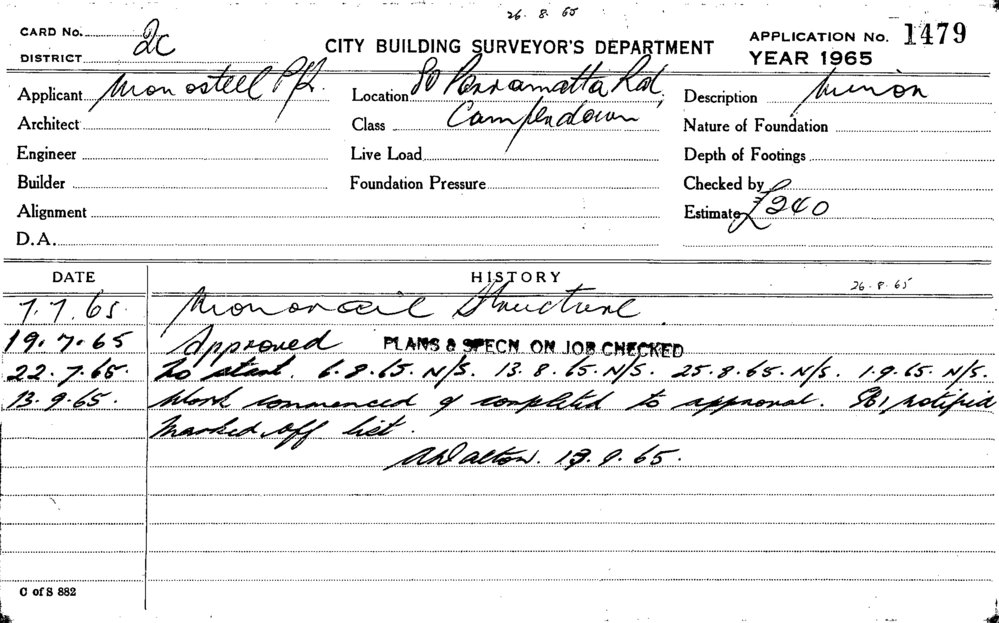 26. 8. 65
CARD No. 2C
DISTRICT
CITY BUILDING SURVEYOR'S DEPARTMENT
APPLICATION No. 1479
YEAR 1965
Applicant Monosteel P/L.
Location 80 Parramatta Rd,
Description Minor
Architect
Class Camperdown
Nature of Foundation
Engineer
Live Load
Depth of Footings
Builder
Foundation Pressure
Checked by
Alignment
Estimate £240
D.A.
DATE HISTORY 26.8.65
7.7.65. Monorail Structure.
19.7.65 Approved PLANS & SPECN. ON JOB CHECKED
22.7.65. To start. 6.8.65. N/S. 13.8.65. N/S. 25.8.65. N/S. 1.9.65. N/S.
13.9.65. Work commenced & completed to approval. notified
Marked off list.
A Dalton. 13.9.65.
C of S 882